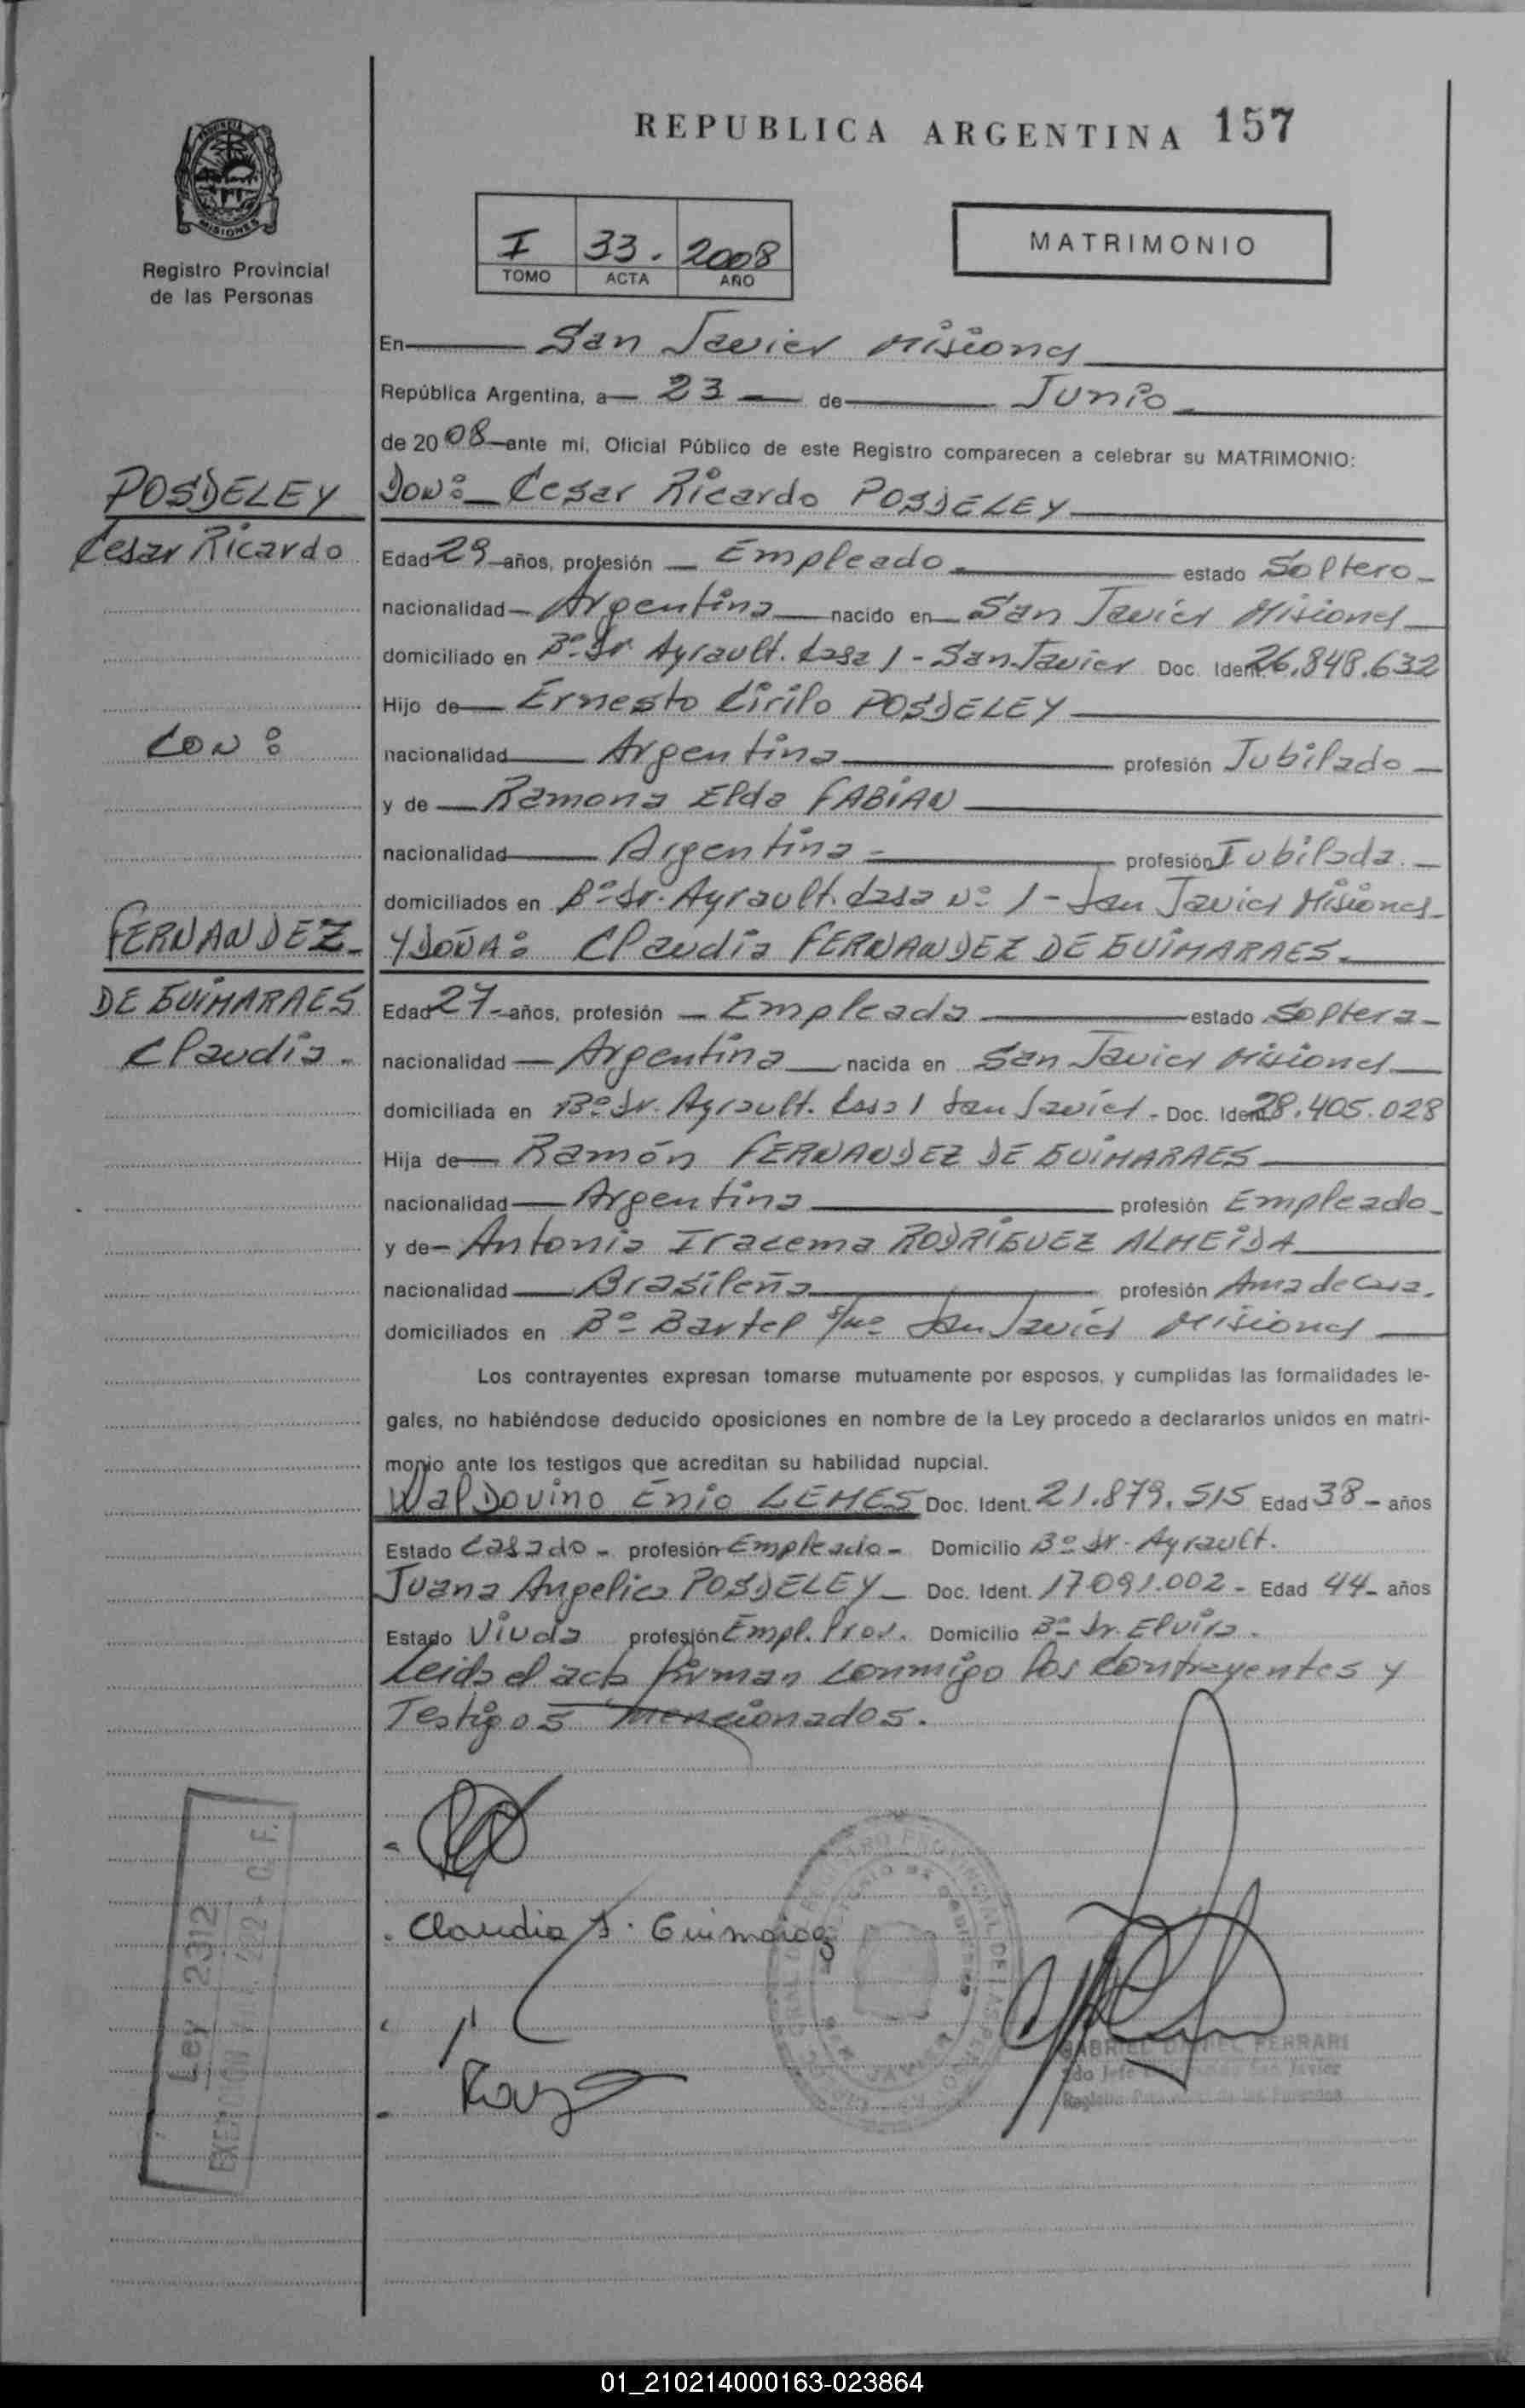 REPUBLICA ARGENTINA 157
MISIONES
Registro Provincial
de las Personas
I 33. 2008
TOMO ACTA AÑO
MATRIMONIO
En San Javier Misiones
República Argentina, a 23 de Junio
de 2008 ante mi, Oficial Público de este Registro comparecen a celebrar su MATRIMONIO:
POSDELEY
Cesar Ricardo
CON:
FERNANDEZ
DE GUIMARAES
Claudia.
DON: Cesar Ricardo POSDELEY
Edad 29 años, profesión Empleado estado Soltero
nacionalidad Argentina nacido en San Javier Misiones
domiciliado en Bº Sr. Ayrault. Casa 1 - San Javier Doc. Ident. 26.848.632
Hijo de Ernesto Cirilo POSDELEY
nacionalidad Argentina profesión Jubilado
y de Ramona Elda FABIAN
nacionalidad Argentina profesión Jubilada.
domiciliados en Bº Sr. Ayrault. Casa Nº 1 - San Javier Misiones
Y DOÑA: Claudia FERNANDEZ DE GUIMARAES.
Edad 27 años, profesión Empleada estado Soltera
nacionalidad Argentina nacida en San Javier Misiones
domiciliada en Bº Sr. Ayrault. Casa 1 San Javier - Doc. Ident. 28.405.028
Hija de Ramón FERNANDEZ DE GUIMARAES
nacionalidad Argentina profesión Empleado
y de Antonia Iracema RODRIGUEZ ALMEIDA
nacionalidad Brasileña profesión Ama de Casa.
domiciliados en Bº Bartel s/nº San Javier Misiones
Los contrayentes expresan tomarse mutuamente por esposos, y cumplidas las formalidades le-
gales, no habiéndose deducido oposiciones en nombre de la Ley procedo a declararlos unidos en matri-
monio ante los testigos que acreditan su habilidad nupcial.
WalDovino Enio LEMES Doc. Ident. 21.879.515 Edad 38 - años
Estado Casado - profesión Empleado - Domicilio Bº Sr. Ayrault.
Juana Angelica POSDELEY Doc. Ident. 17091.002 - Edad 44 - años
Estado Viuda profesión Empl. Prov. Domicilio Bº Sr. Elvira.
Leida el acta firman conmigo los contrayentes y
Testigos mencionados.
Claudia Guimaraes
Ley 2312
GABRIEL DANIEL FERRARI
San Javier
01_210214000163-023864